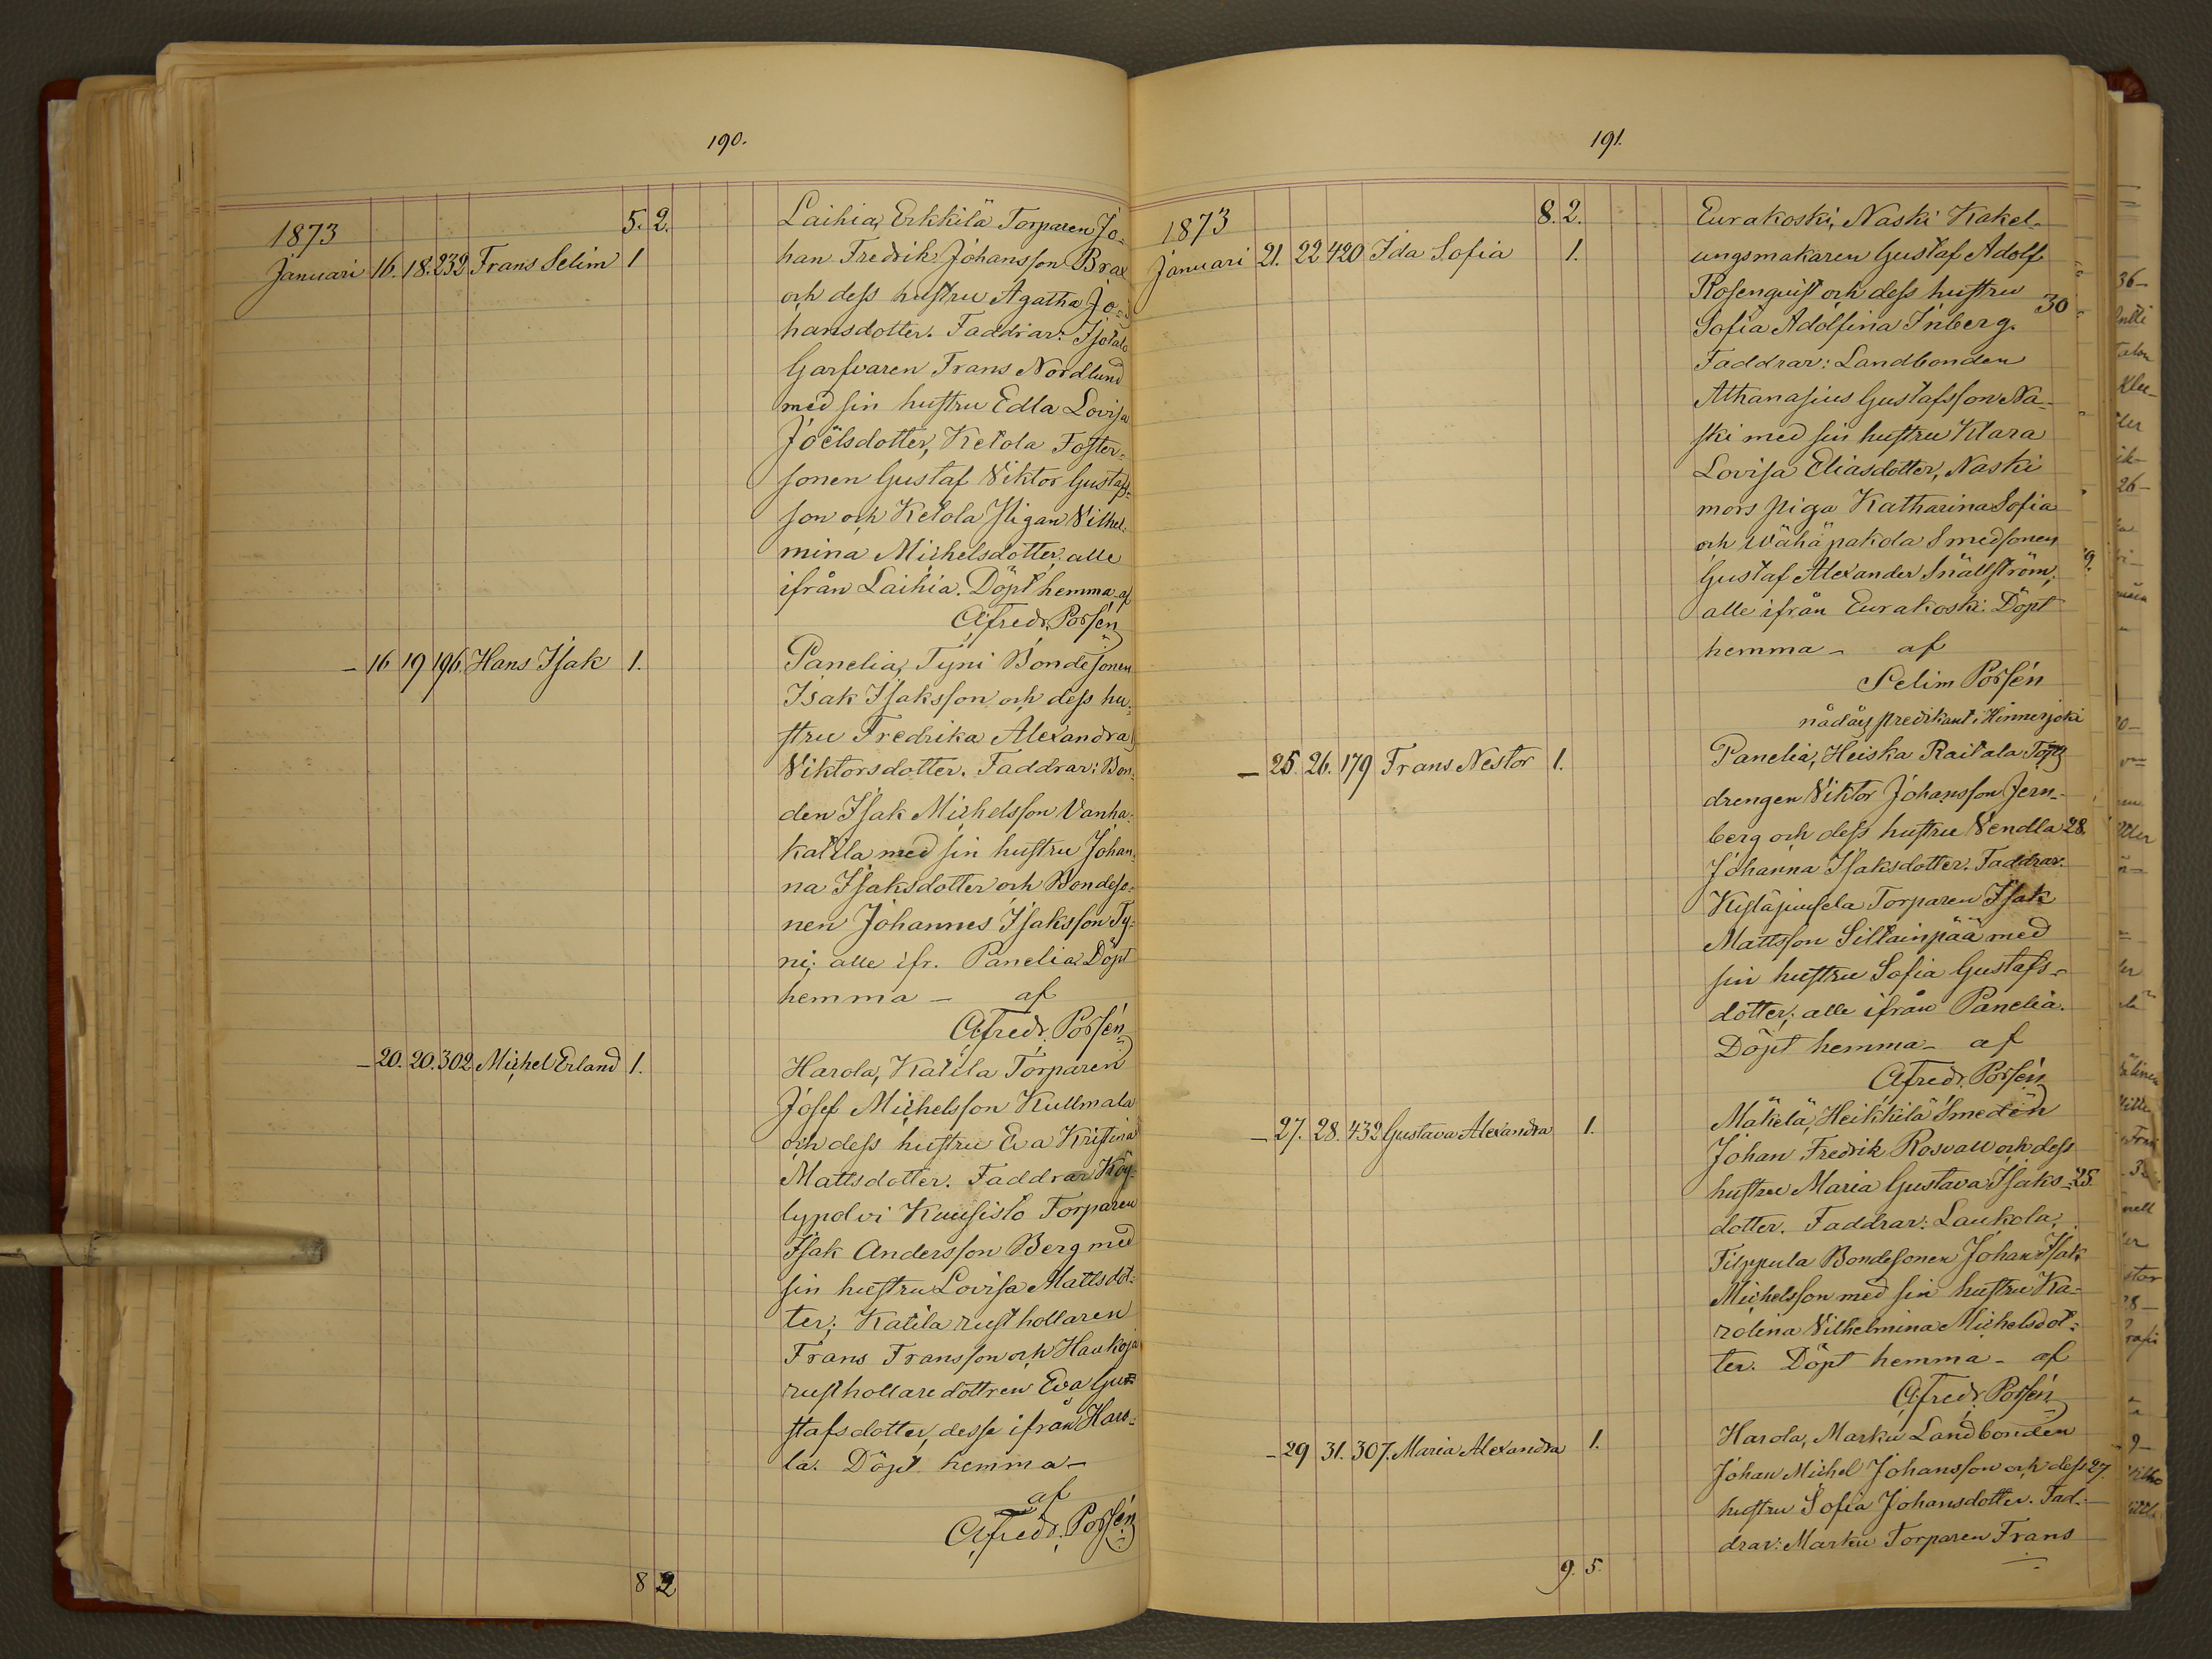 190.
1873 5. 2. Laihia, Erkkilä Torparen Jo-
Januari 16. 18. 232 Frans Selim 1 han Fredrik Johansson Brax
och dess hustru Agatha Jo-
hansdotter. Faddrar: Isotalo
Garfvaren Frans Nordlund
med sin hustru Edla Lovisa
Joëlsdotter, Ketola Foster-
sonen Gustaf Viktor Gustafs-
son och Ketola Pigan Vilhel-
mina Michelsdotter; alle
ifrån Laihia. Döpt hemma af
Afredr. Porsén
— 16 19 196. Hans Isak 1. Panelia, Tyni Bondesonen
Isak Isaksson och dess hu-
stru Fredrika Alexandra
Viktorsdotter. Faddrar: Bon-
den Isak Michelsson Vanha-
katila med sin hustru Johan-
na Isaksdotter och Bondeso-
nen Johannes Isaksson Ty-
ni; alle ifr. Panelia Döpt
hemma — af
Afredr. Porsén
— 20. 20. 302 Michel Erland 1. Harola, Katila Torparen
Josef Michelsson Kullmala
och dess hustru Eva Kristina
Mattsdotter. Faddrar Köy-
lypolvi Kuusisto Torparen
Isak Andersson Berg med
sin hustru Lovisa Mattsdot-
ter; Katila rusthollaren
Frans Fransson och Haukoja
rusthollaredottren Eva Gu-
stafsdotter, desse ifrån Haro-
la. Döpt hemma —
af
Afredr. Porsén
8 2
191.
1873 8. 2. Eurakoski, Naski Kakel-
Januari 21. 22 420 Ida Sofia 1. ungsmakaren Gustaf Adolf
Rosenquist och dess hustru
30
Sofia Adolfina Inberg.
Faddrar: Landbonden
Athanasius Gustafsson Na-
ski med sin hustru Klara
Lovisa Eliasdotter, Naski
mors Piga Katharina Sofia
och Wähäpakola Smedsonen
Gustaf Alexander Snällström;
alle ifrån Eurakoski. Döpt
hemma — af
Selim Porsén
nådårs predikant i Hinnerjoki
— 25. 26. 179 Frans Nestor 1. Panelia, Heiska Raitala Torp
drengen Viktor Johansson Jern-
berg och dess hustru Vendla 28.
Johanna Isaksdotter. Faddrar.
Torparen Isak
Mattsson Siltainpää med
sin hustru Sofia Gustafs-
dotter; alle ifrån Panelia.
Döpt hemma — af
Afredr. Porsén
— 27. 28. 432 Gustava Alexandra 1. Mäkelä, Heikkilä Smeden
Johan Fredrik Rosvall och dess
hustru Maria Gustava Isaks- 25.
dotter. Faddrar: Laukola,
Filppula Bondesonen Johan Isak
Michelsson med sin hustru Ka-
rolina Vilhelmina Michelsdot-
ter. Döpt hemma — af
Afredr. Porsén
— 29 31. 307. Maria Alexandra 1. Harola, Marku Landbonden
Johan Michel Johansson och dess 27.
hustru Sofia Johansdotter. Fad-
drar: Marku Torparen Frans
9. 5.